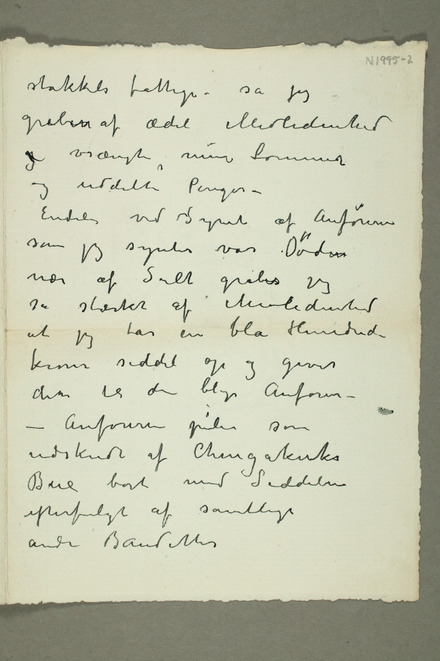 N 1995-2
stakkels fattige – så jeg
greben af ædel Medlidenhed
og vrængte mine Lommer
og uddelte Penger –
Endelig ved Synet af Anføreren
som jeg syntes var Døden
nær af Sult grebes jeg
så stærkt af Medlidenhed
at jeg tar en blå Hundrede
krone seddel op og giver
den til den blege Anfører –
– Anføreren piler som
udskudt af Chingakuks
Bue bort med Seddelen
efterfulgt af samtlige
andre Banditter